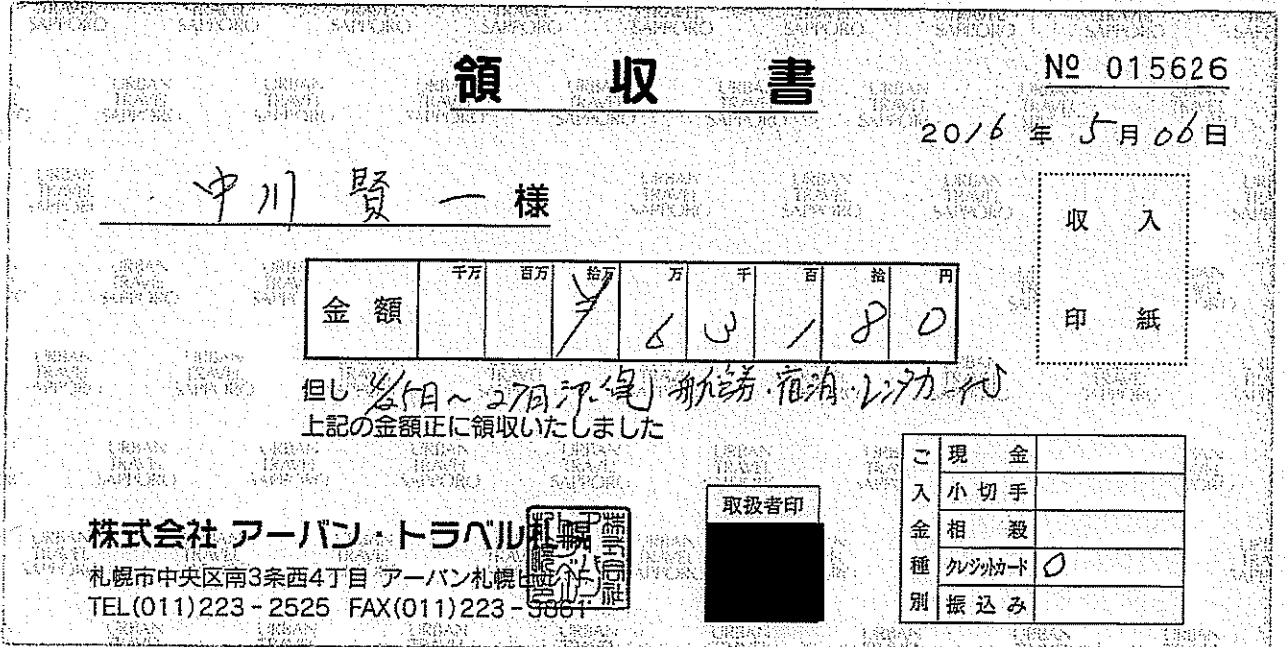 領収書
№ 015626
2016年 5月06日
中川 賢一 様
収入
印紙
金額 千万 百万 拾万 万 千 百 拾 円
¥63180
但し 4/25日～27日 沖縄 航空券・宿泊・レンタカー代
上記の金額正に領収いたしました
ご入金種別
現金
小切手
相殺
クレジットカード 〇
振込み
取扱者印
株式会社 アーバン・トラベル札幌
札幌市中央区南3条西4丁目 アーバン札幌ビル
TEL(011)223-2525 FAX(011)223-3861